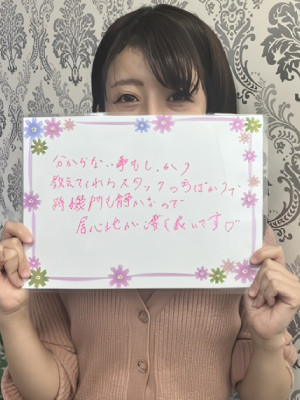 分からない事もしっかり
教えてくれるスタッフの方ばかりで、
待機門も静かなので
居心地が凄く良いです♡